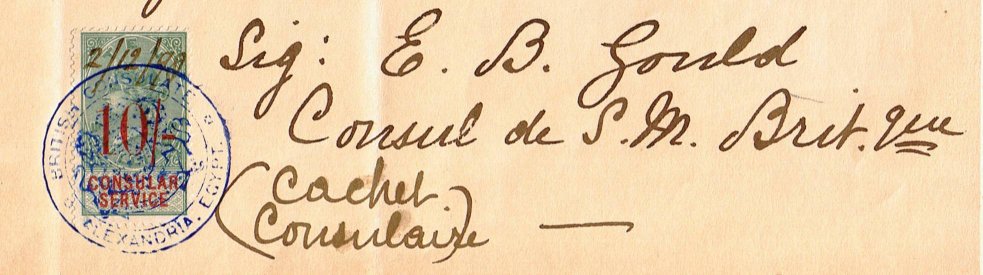 Sig: E. B. Gould
Consul de S. M. Brit.que
(Cachet
Consulaire)
10/-
CONSULAR
SERVICE
BRITISH CONSULATE
ALEXANDRIA. EGYPT.